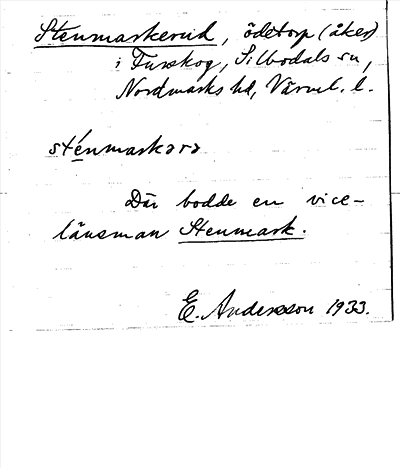 Stenmarkerud, ödetorp (åker)
i Furskog, Silbodals sn,
Nordmarks hd, Värml. l.
sténmarkərə
Där bodde en vice-
länsman Stenmark.
E. Andersson 1933.